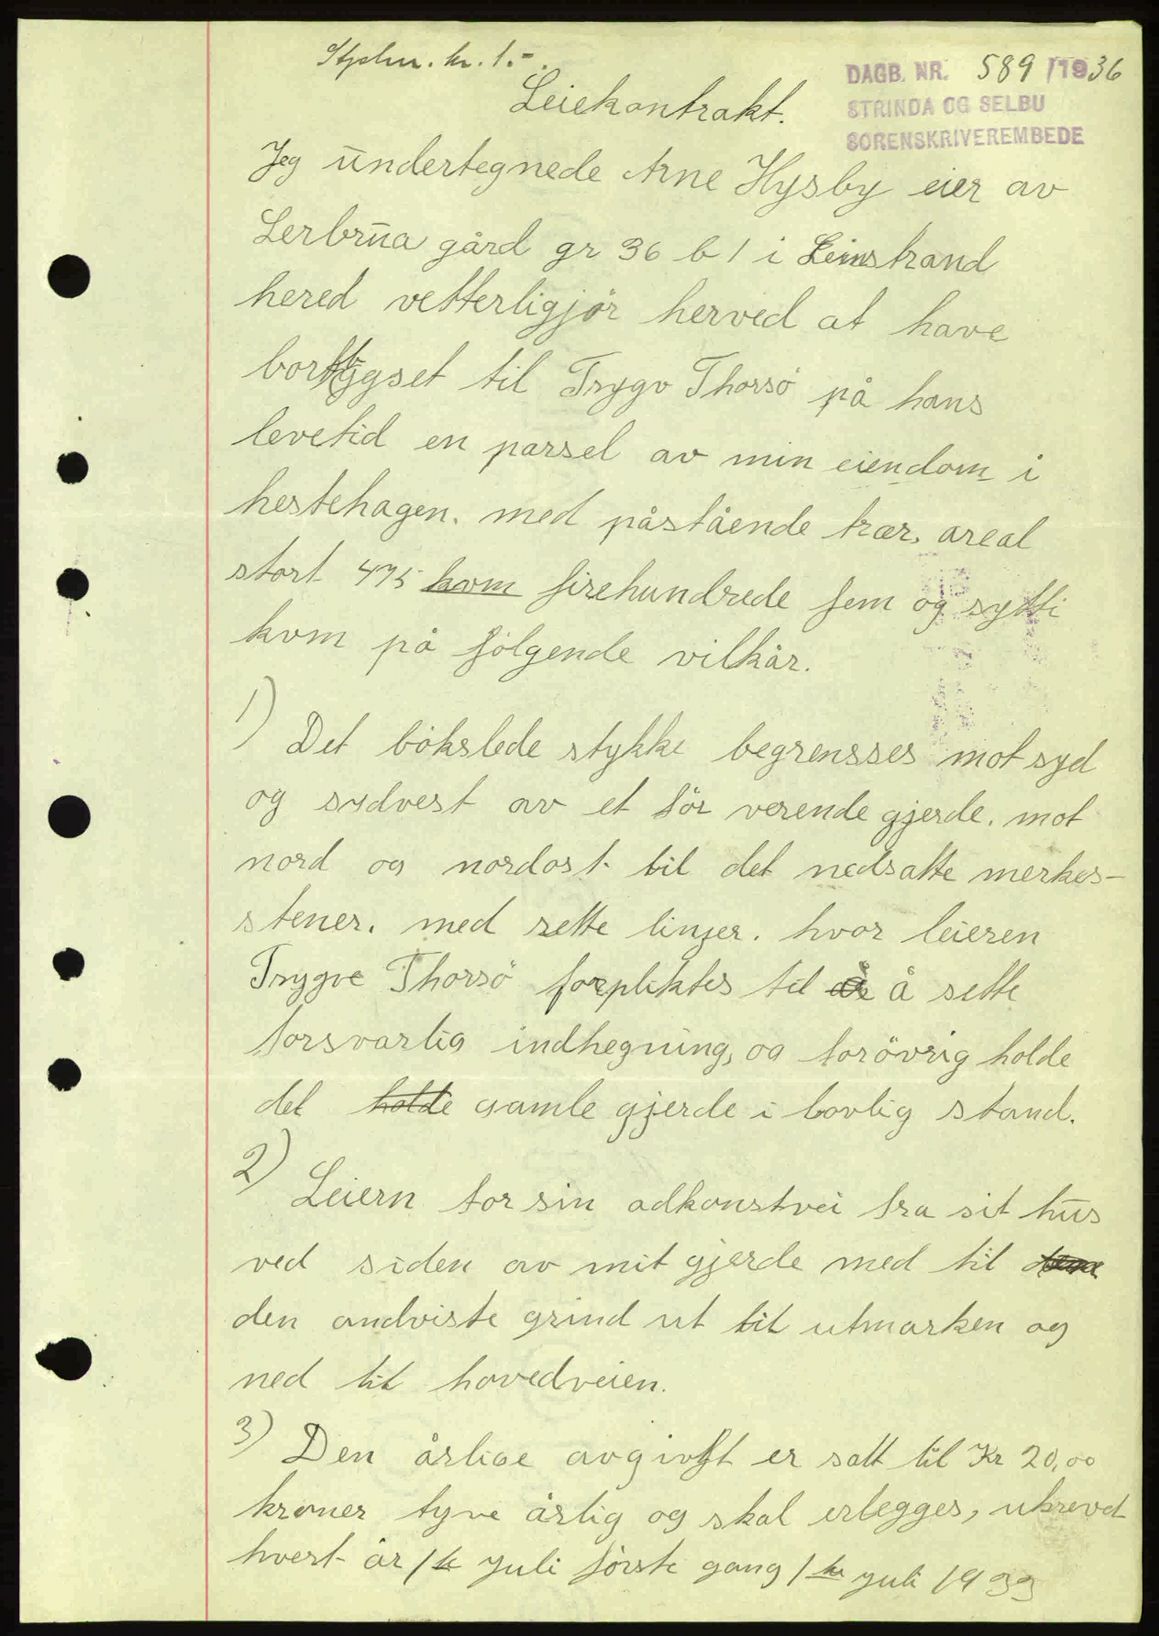 Stpehm. kr. 1.-.
DAGB. NR. 589 /1936
STRINDA OG SELBU
SORENSKRIVEREMBEDE
Leiekontrakt.
Jeg undertegnede Arne Hysby eier av
Lerbrua gård gr 36 b 1 i Leinstrand
hered vetterligjör herved at have
bortbygset til Trygv Thorsö på hans
levetid en parsel av min eiendom i
hestehagen. med påstående trær, areal
stort 475 kvm firehundrede fem og sytti
kvm på fölgende vilkår.
1) Det bökslede stykke begrensses mot syd
og sydvest av et för verende gjerde. mot
nord og nordost til det nedsatte merkes-
stener. med rette linjer. hvor leieren
Trygve Thorsö forpliktes til å sette
forsvarlig indhegning, og forövrig holde
det holde gamle gjerde i lovlig stand.
2) Leiern for sin adkonstvei fra sit hus
ved siden av mit gjerde med til
den andviste grind ut til utmarken og
ned til hovedveien.
3) Den årlige avgivft er satt til Kr 20,00
kroner tyve årlig og skal erlegges, ukrevd
hvert år 1ste juli förste gang 1ste juli 1933